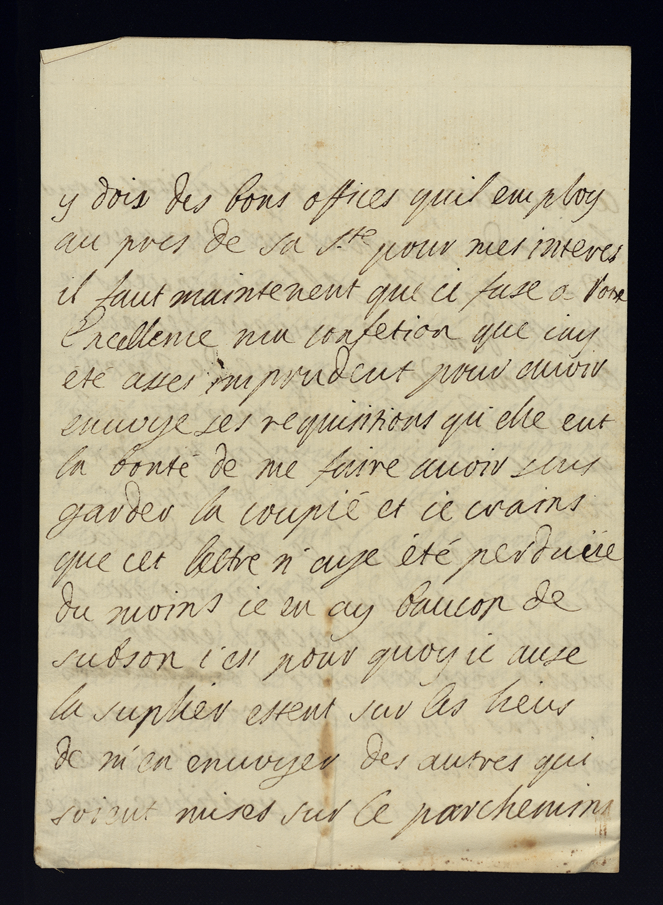 y dois des bons offices quil employ
au pres de sa Ste pour mes interes
il faut maintenent que ie fase a Votre
Excellence ma confetion que iay
eté asses imprudent pour avoir
envoye ses requisitions qu elle eut
la bonté de me faire avoir sens
garder la coupié et ie crains
que cet lettre n aye été perduüe
du moins ie en ay baucop de
subson c'est pour quoy ie ause
la suplier estent sur les lieus
de m'en envoyer des autres qui
soient mises sur le parchemins